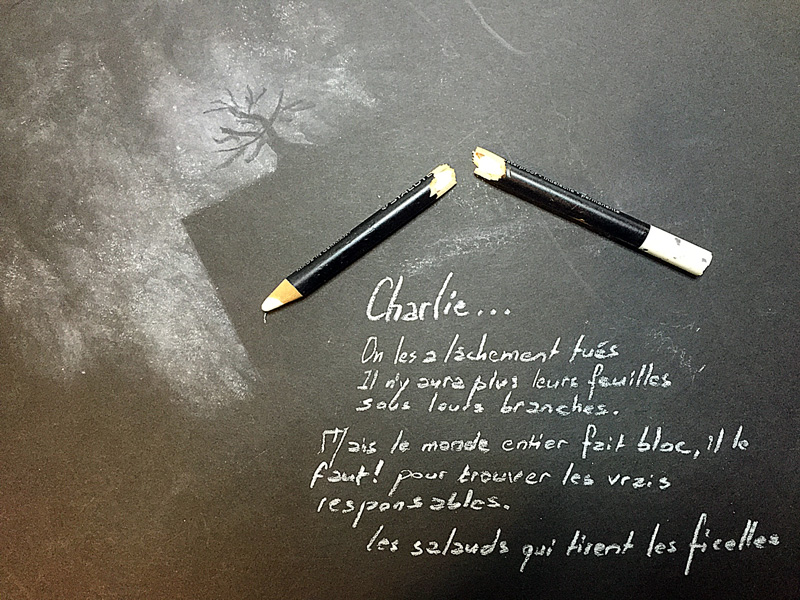 Charlie...
On les a lâchement tués
Il n'y aura plus leurs feuilles
sous leurs branches.
Mais le monde entier fait bloc, il le
faut! pour trouver les vrais
responsables.
les salauds qui tirent les ficelles